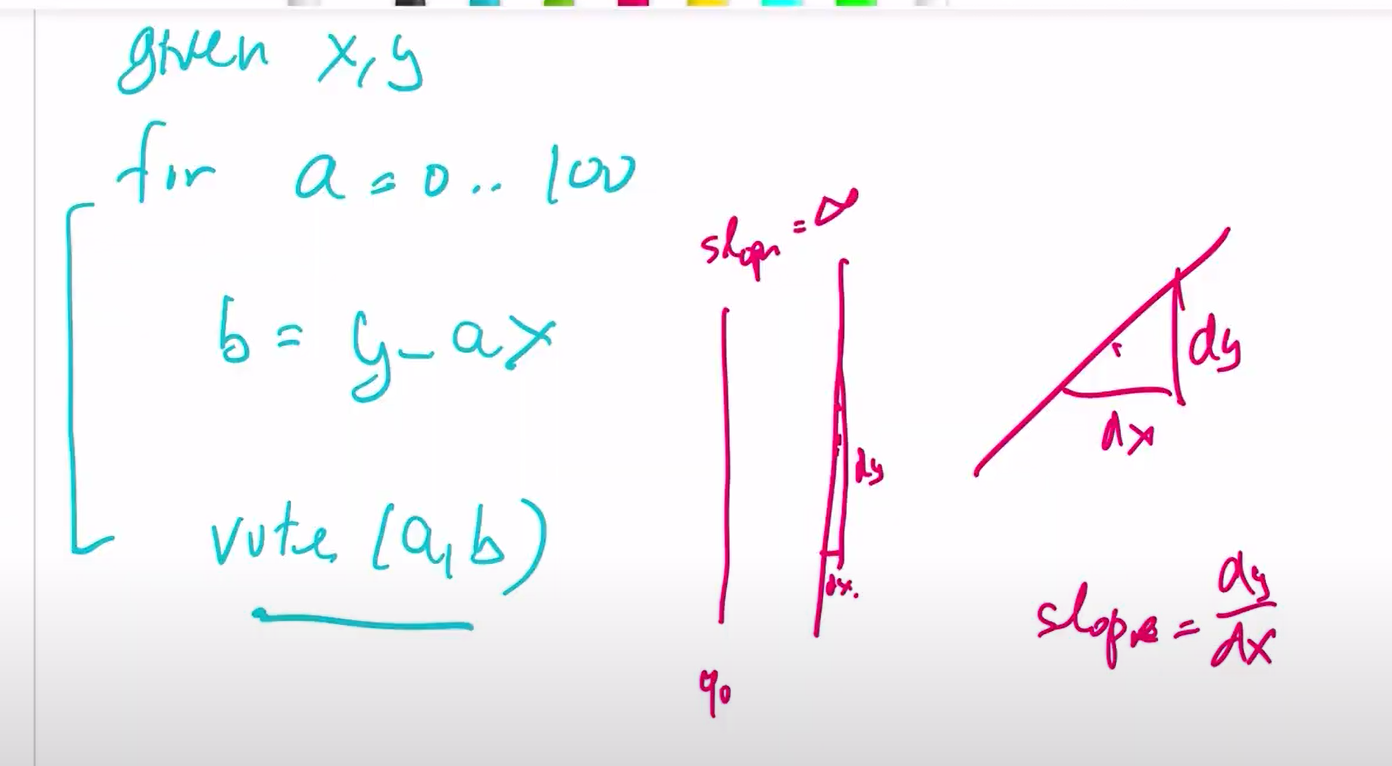 given x, y
for a = 0 .. 100
b = y - ax
vote (a, b)
slope = ∞
dy
dx.
90
dy
dx
slope = dy/dx